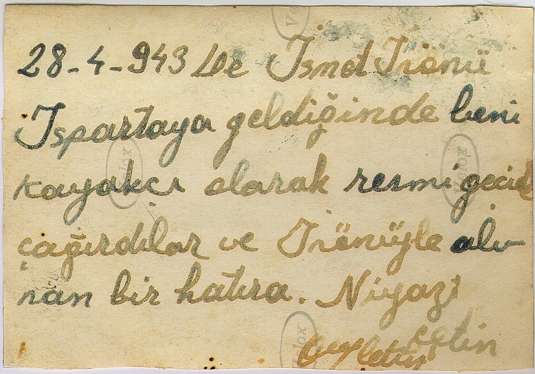 28-4-943 de İsmet İnönü
Ispartaya geldiğinde beni
kayakcı olarak resmi gecide
çağırdılar ve İnönüyle alı-
nan bir hatıra. Niyazi
çetin